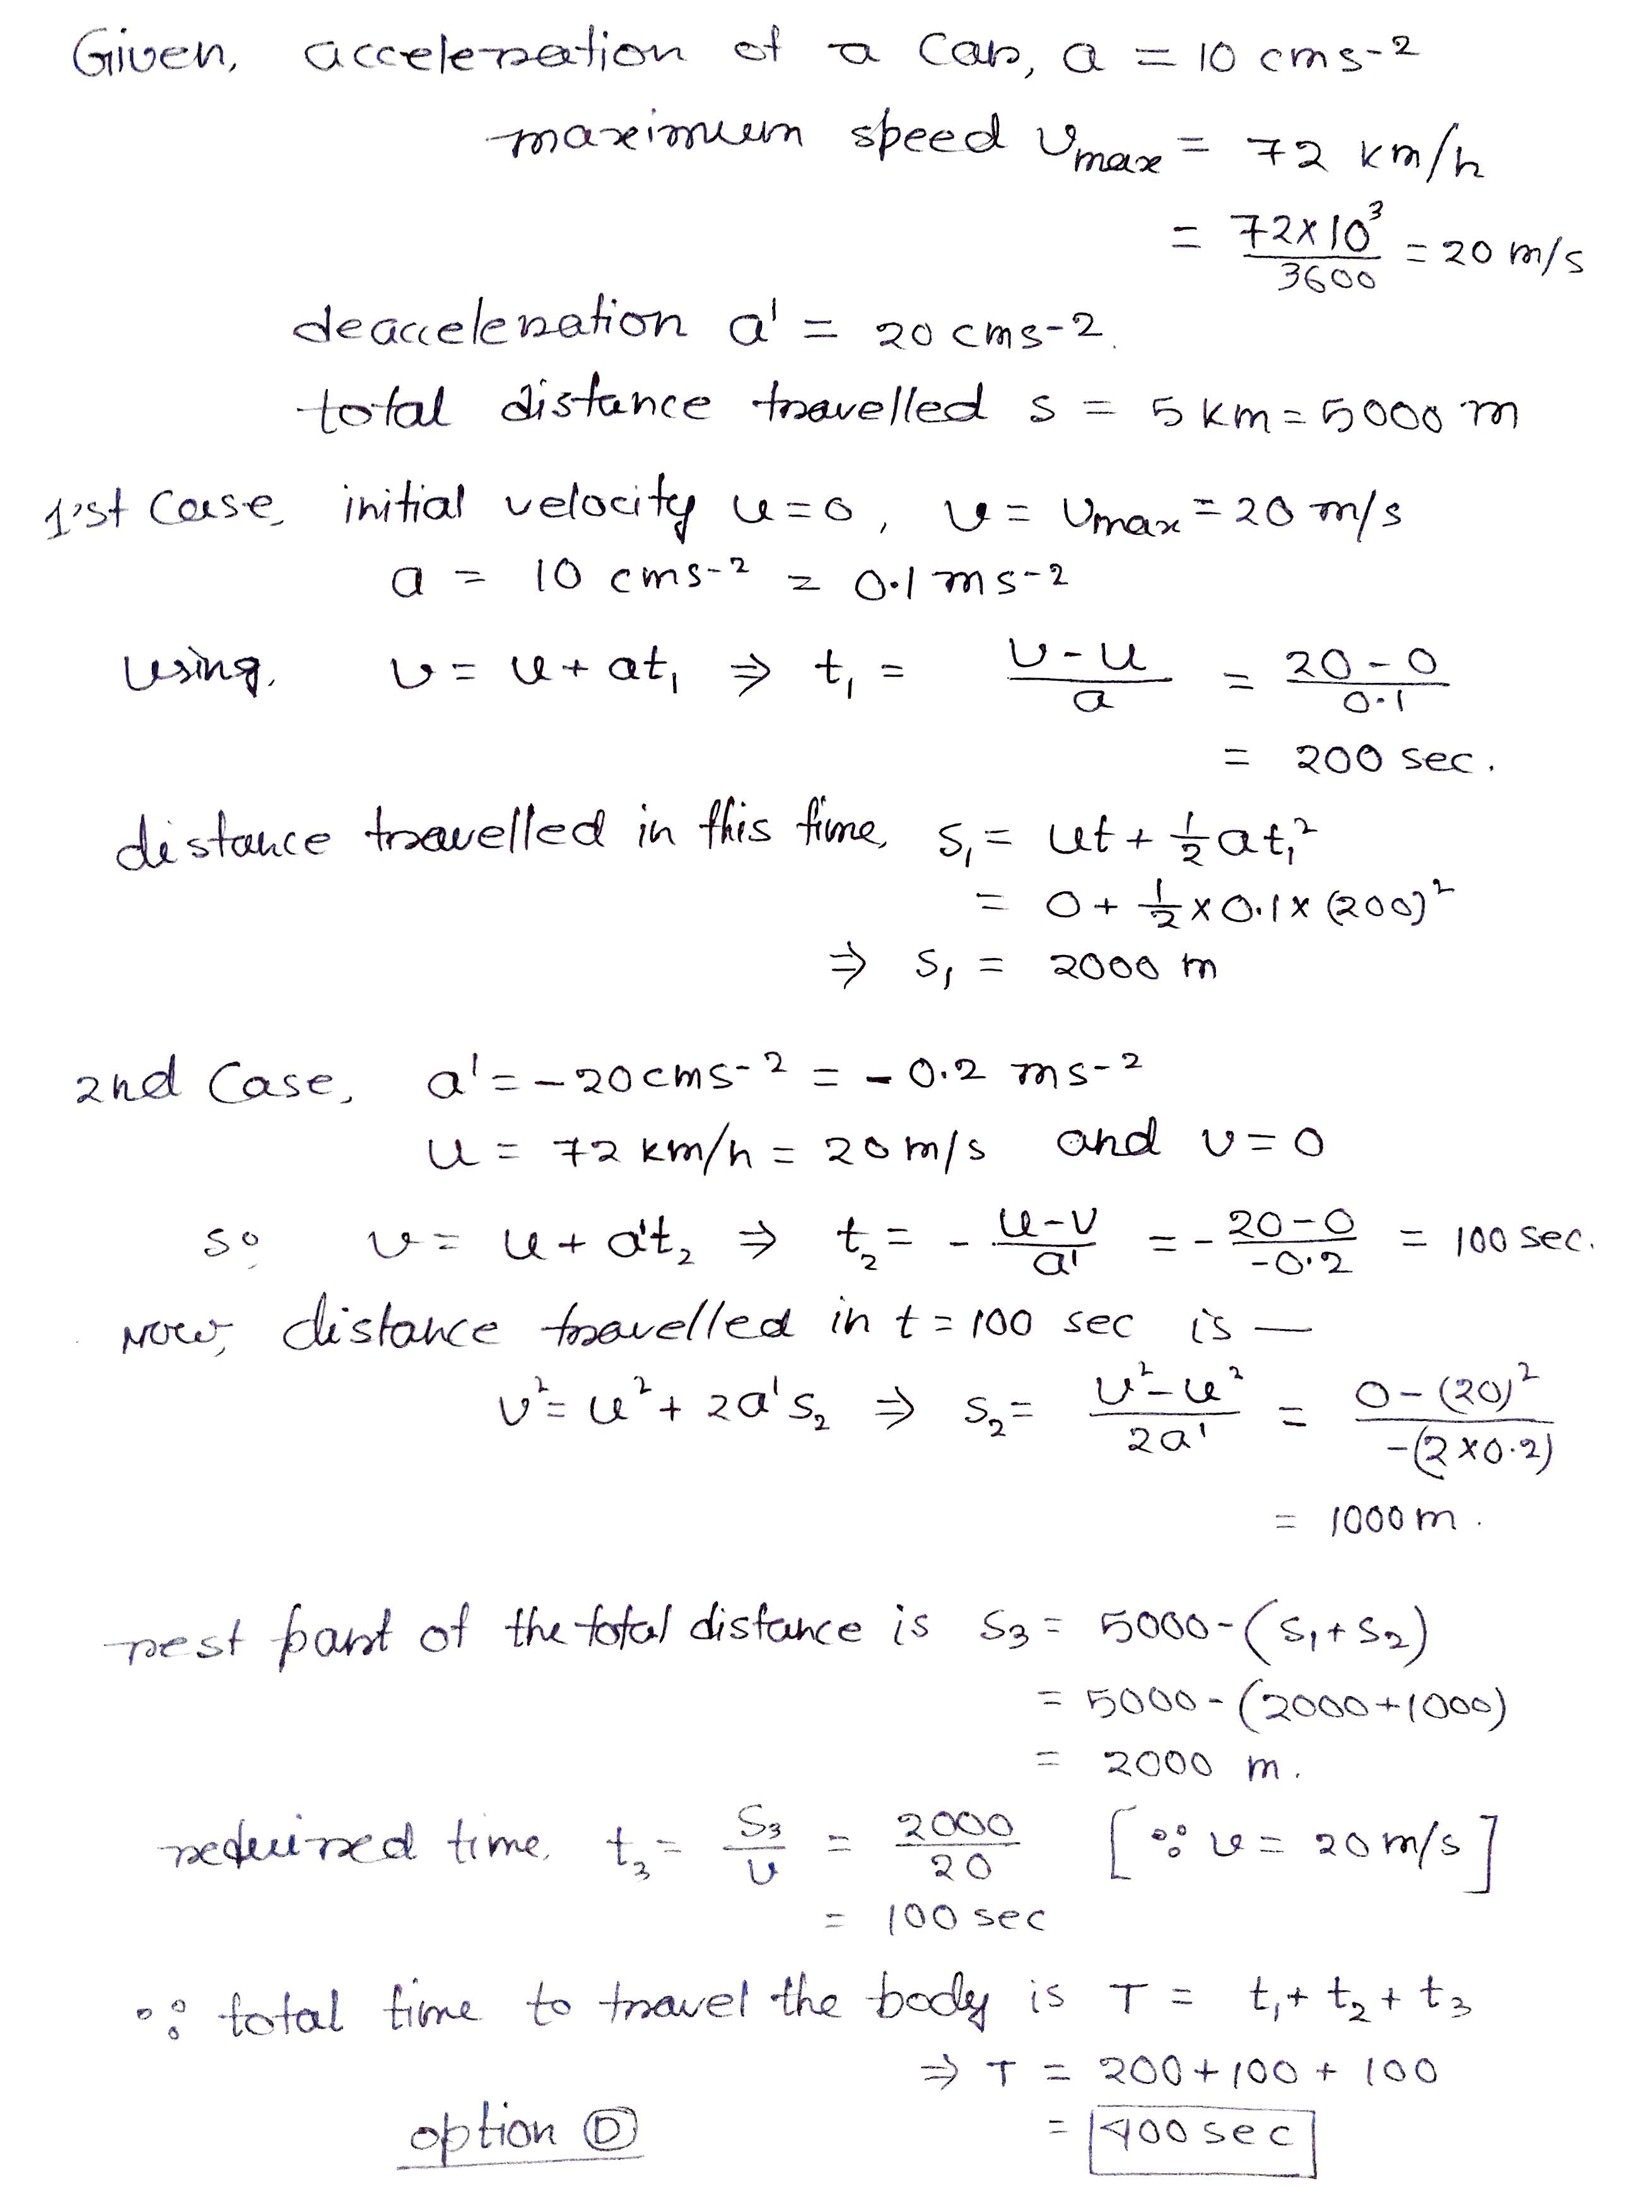 Given, acceleration of a car, a = 10 cms-2
maximum speed Vmax = 72 km/h
= 72×10³/3600 = 20 m/s
deacceleration a' = 20 cms-2.
total distance travelled s = 5 km = 5000 m
1'st Case, initial velocity u=0, v = Vmax = 20 m/s
a = 10 cms-2 = 0.1 ms-2
using, v = u + at₁ ⇒ t₁ = v-u/a = 20-0/0.1
= 200 sec.
distance travelled in this time, s₁ = ut + ½at₁²
= 0 + ½×0.1×(200)²
⇒ s₁ = 2000 m
2nd Case, a' = -20cms-2 = -0.2 ms-2
u = 72 km/h = 20 m/s and v=0
so v = u + a't₂ ⇒ t₂ = - u-v/a' = - 20-0/-0.2 = 100 sec.
Now, distance travelled in t = 100 sec is —
v² = u² + 2a's₂ ⇒ s₂ = v²-u²/2a' = 0-(20)²/-(2×0.2)
= 1000 m.
rest part of the total distance is s₃ = 5000-(s₁+s₂)
= 5000-(2000+1000)
= 2000 m.
required time, t₃ = s₃/v = 2000/20 [∵ v = 20 m/s]
= 100 sec
∴ total time to travel the body is T = t₁+t₂+t₃
⇒ T = 200+100+100
= 400 sec
option D